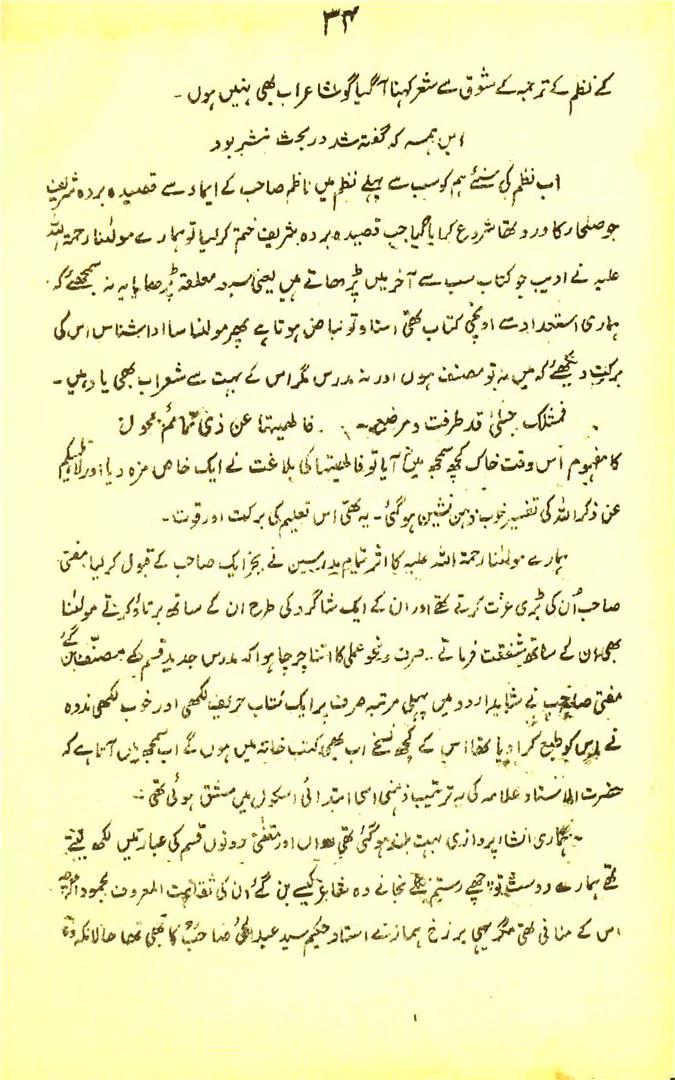 ۳۴
کے نظم کے ترجمہ کے شوق سے شعر کہنا آ گیا گو شاعر اب بھی نہیں ہوں ۔
ایں ہمہ کہ گفتہ شد در بحث نثر بود
اب نظم کی سنئے ہم کو سب سے پہلے نظم میں ناظم صاحب کے ایماء سے قصیدہ بردہ شریف
جو صلحاء کا ورد تھا شروع کرایا گیا جب قصیدہ بردہ شریف ختم کر لیا تو ہمارے مولٰنا رحمۃ اللہ
علیہ نے ادیب جو کتاب سب سے آخر میں پڑھاتے ہیں یعنی سبعہ معلقہ پڑھایا یہ نہ سمجھئے کہ
ہماری استعداد سے اونچی کتاب تھی استاد تو نباض ہوتا ہے پھر مولٰنا سا ادا شناس اس کی
برکت دیکھئے کہ میں نہ تو مصنف ہوں اور نہ مدرس مگر اس کے بہت سے شعر اب بھی یاد ہیں ۔
فمثلک حبلیٰ قد طرقت و مرضع ۔ فالھیتھا عن ذی تمائم محول
کا مفہوم اس وقت خاک کچھ سمجھ میں آیا تو فالھیتھا کی بلاغت نے ایک خاص مزہ دیا اور لا تلھیکم
عن ذکر اللہ کی تفسیر خوب ذہن نشین ہو گئی ۔ یہ تھی اس تعلیم کی برکت اور قوت ۔
ہمارے مولٰنا رحمۃ اللہ علیہ کا اثر تمام مدرسین نے بجز ایک صاحب کے قبول کر لیا مفتی
صاحب اُن کی بڑی عزت کرتے تھے اور ان کے ایک شاگرد کی طرح ان کے ساتھ برتاؤ کرتے مولٰنا
بھی ان کے ساتھ شفقت فرماتے ۔۔ صرف و نحو عملی کا اتنا چرچا ہوا کہ مدرس جدید قسم کے مصنّف بن گئے
مفتی صاحب نے شاید اردو میں پہلی مرتبہ صرف پر ایک کتاب لکھی اور خوب لکھی ندوہ
نے اس کو طبع کرا دیا تھا اس کے کچھ نسخے اب بھی کتب خانہ میں ہوں گے اب سمجھ میں آتا ہے کہ
حضرت الاستاد علامہ کی یہ ترتیب ذہنی اسی ابتدائی اسکول میں مشق ہوئی تھی ۔
ہماری انشا پردازی بہت بلند ہو گئی تھی اور مقفّٰی دونوں قسم کی عبارتیں لکھ لیتے
تھے ہمارے دوست تو چھپے رستم نکلے نجانے وہ شاعر کیسے بن گئے اُن کی ثقاہت المعروف بجمود اگرچہ
اس کے منافی تھی مگر یہی برزخ ہمارے استاد حکیم سید عبدالحئ صاحب کا بھی تھا حالانکہ وہ